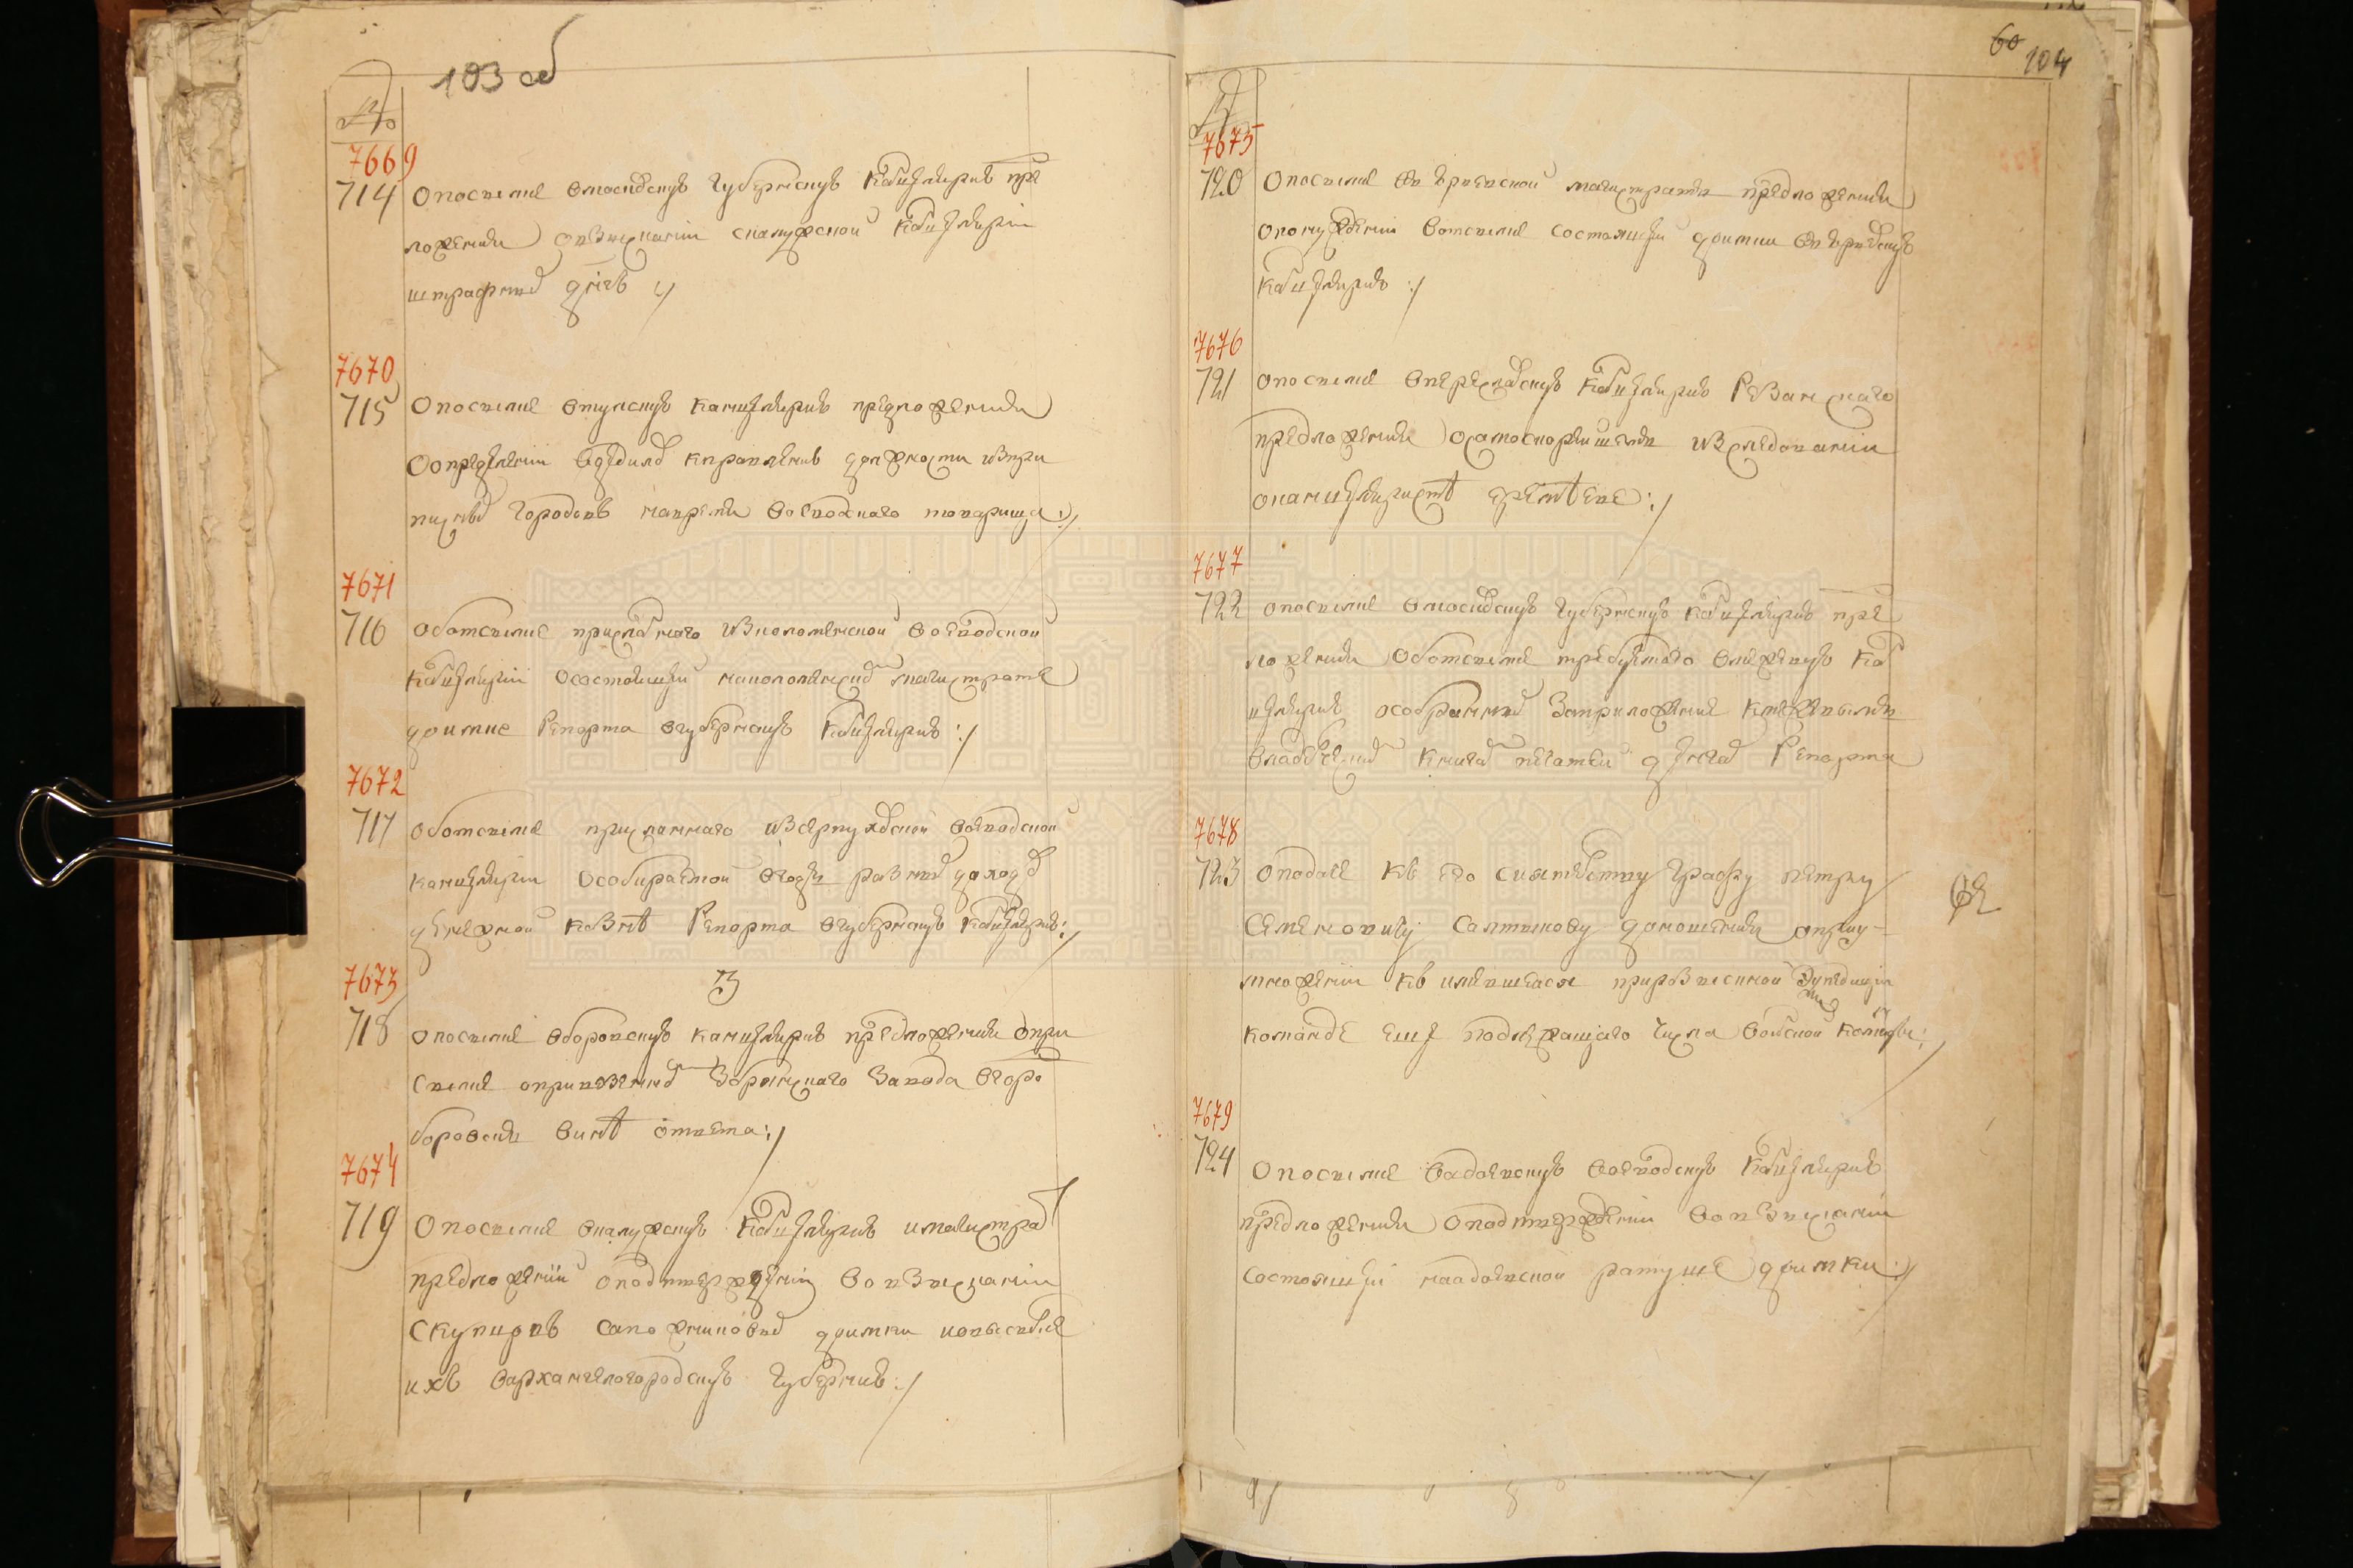 103 об
№
7669
714 о посылке в московскую губернскую канцелярию пред
ложения о взыскании с калужской канцелярии
штрафных денег :/
7670
715 о посылке в тульскую канцелярию предложения
о определении к правлению должности из при
писных городов на время воеводского товарища :/
7671
716 об отсылке присланного из коломенской воеводской
канцелярии о состоящей на коломенском магистрате
доимке репорта в губернскую канцелярию :/
7672
717 об отсылке присланного из серпуховской воеводской
канцелярии о собираемой в городе разных доходов
денежной казне репорта в губернскую канцелярию :/
7673
3
718 о посылке в боровскую канцелярию предложения о при
сылке завода в горо
боровске ответа :/
7674
719 о посылке в калужскую канцелярию и магистрат
предложений о подтверждении во взыскании
с купцов сапожниковых доимки и о высылке
их в архангелогородскую губернию :/
60 104
№
7675
720 о посылке в магистрат предложения
о понуждении в отсылке состоящей доимки в
канцелярию :/
7676
721 о посылке в переславскую канцелярию резанского
предложения о самоскорейшем исследовании
о канцеляристе :/
7677
722 о посылке в московскую губернскую канцелярию пред
ложения об отсылке требуемого в межевую кан
целярию о собранных за приложение к межевым
владельческим книгам печатей денгах репорта
7678
723 о подаче к его сиятельству графу петру
семеновичу салтыкову доношения о приу
множении к имевшейся при розыскной экспедиции
команде еще надлежащего числа воинской команды :/
7679
724 о посылке в воеводскую канцелярию
предложения о подтверждении во взыскании
состоящей на ратуше доимки :/